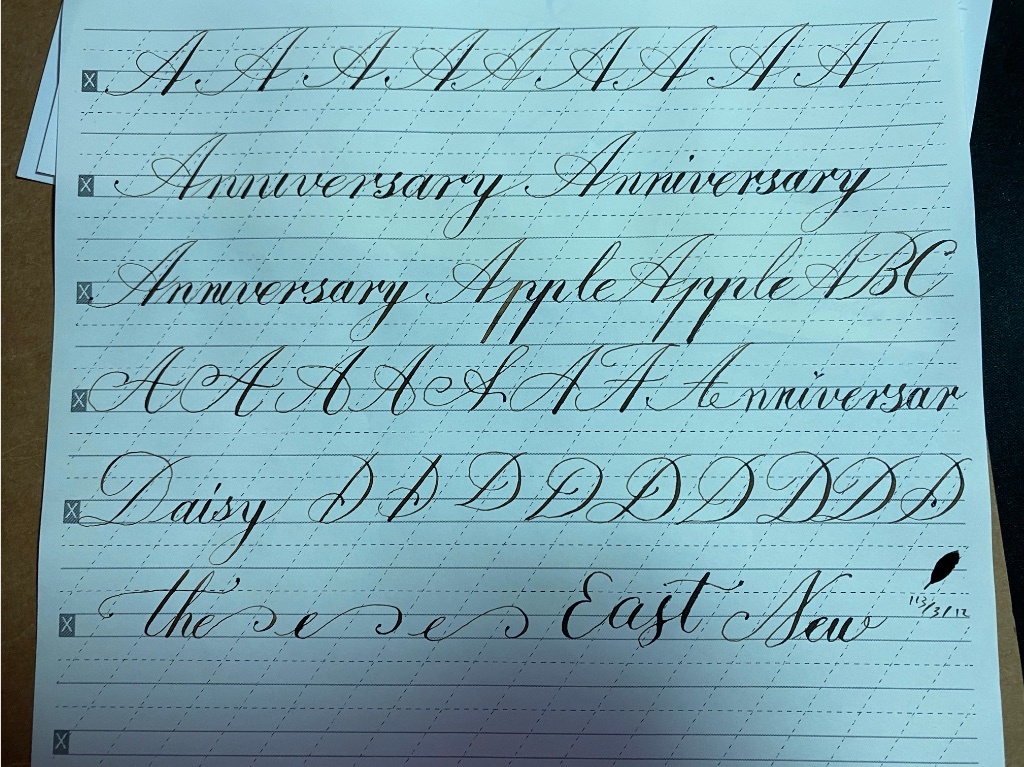 X A A A A A A A A A
X Anniversary Anniversary
X Anniversary Apple Apple ABC
X A A A A A A A Anniversar
X Daisy D D D D D D D D D
X the e e East New
113/3/12
X